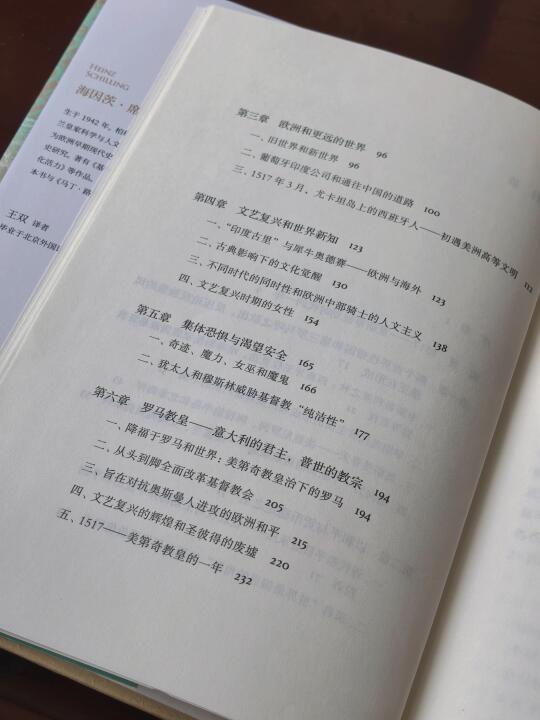 HEINZ
SCHILLING
海因茨·席
生于1942年，柏
兰皇家科学与人文
为欧洲早期现代史
史研究，著有《基
化活力》等作品。
本书与《马丁·路
王双 译者
毕业于北京外国
第三章 欧洲和更远的世界 96
一、旧世界和新世界 96
二、葡萄牙印度公司和通往中国的道路 100
三、1517年3月，尤卡坦岛上的西班牙人——初遇美洲高等文明 112
第四章 文艺复兴和世界新知 123
一、“印度古里”与犀牛奥德赛——欧洲与海外 123
二、古典影响下的文化觉醒 130
三、不同时代的同时性和欧洲中部骑士的人文主义 138
四、文艺复兴时期的女性 154
第五章 集体恐惧与渴望安全 165
一、奇迹、魔力、女巫和魔鬼 166
二、犹太人和穆斯林威胁基督教“纯洁性” 177
第六章 罗马教皇——意大利的君主，普世的教宗 194
一、降福于罗马和世界：美第奇教皇治下的罗马 194
二、从头到脚全面改革基督教会 205
三、旨在对抗奥斯曼人进攻的欧洲和平 215
四、文艺复兴的辉煌和圣彼得的废墟 220
五、1517——美第奇教皇的一年 232